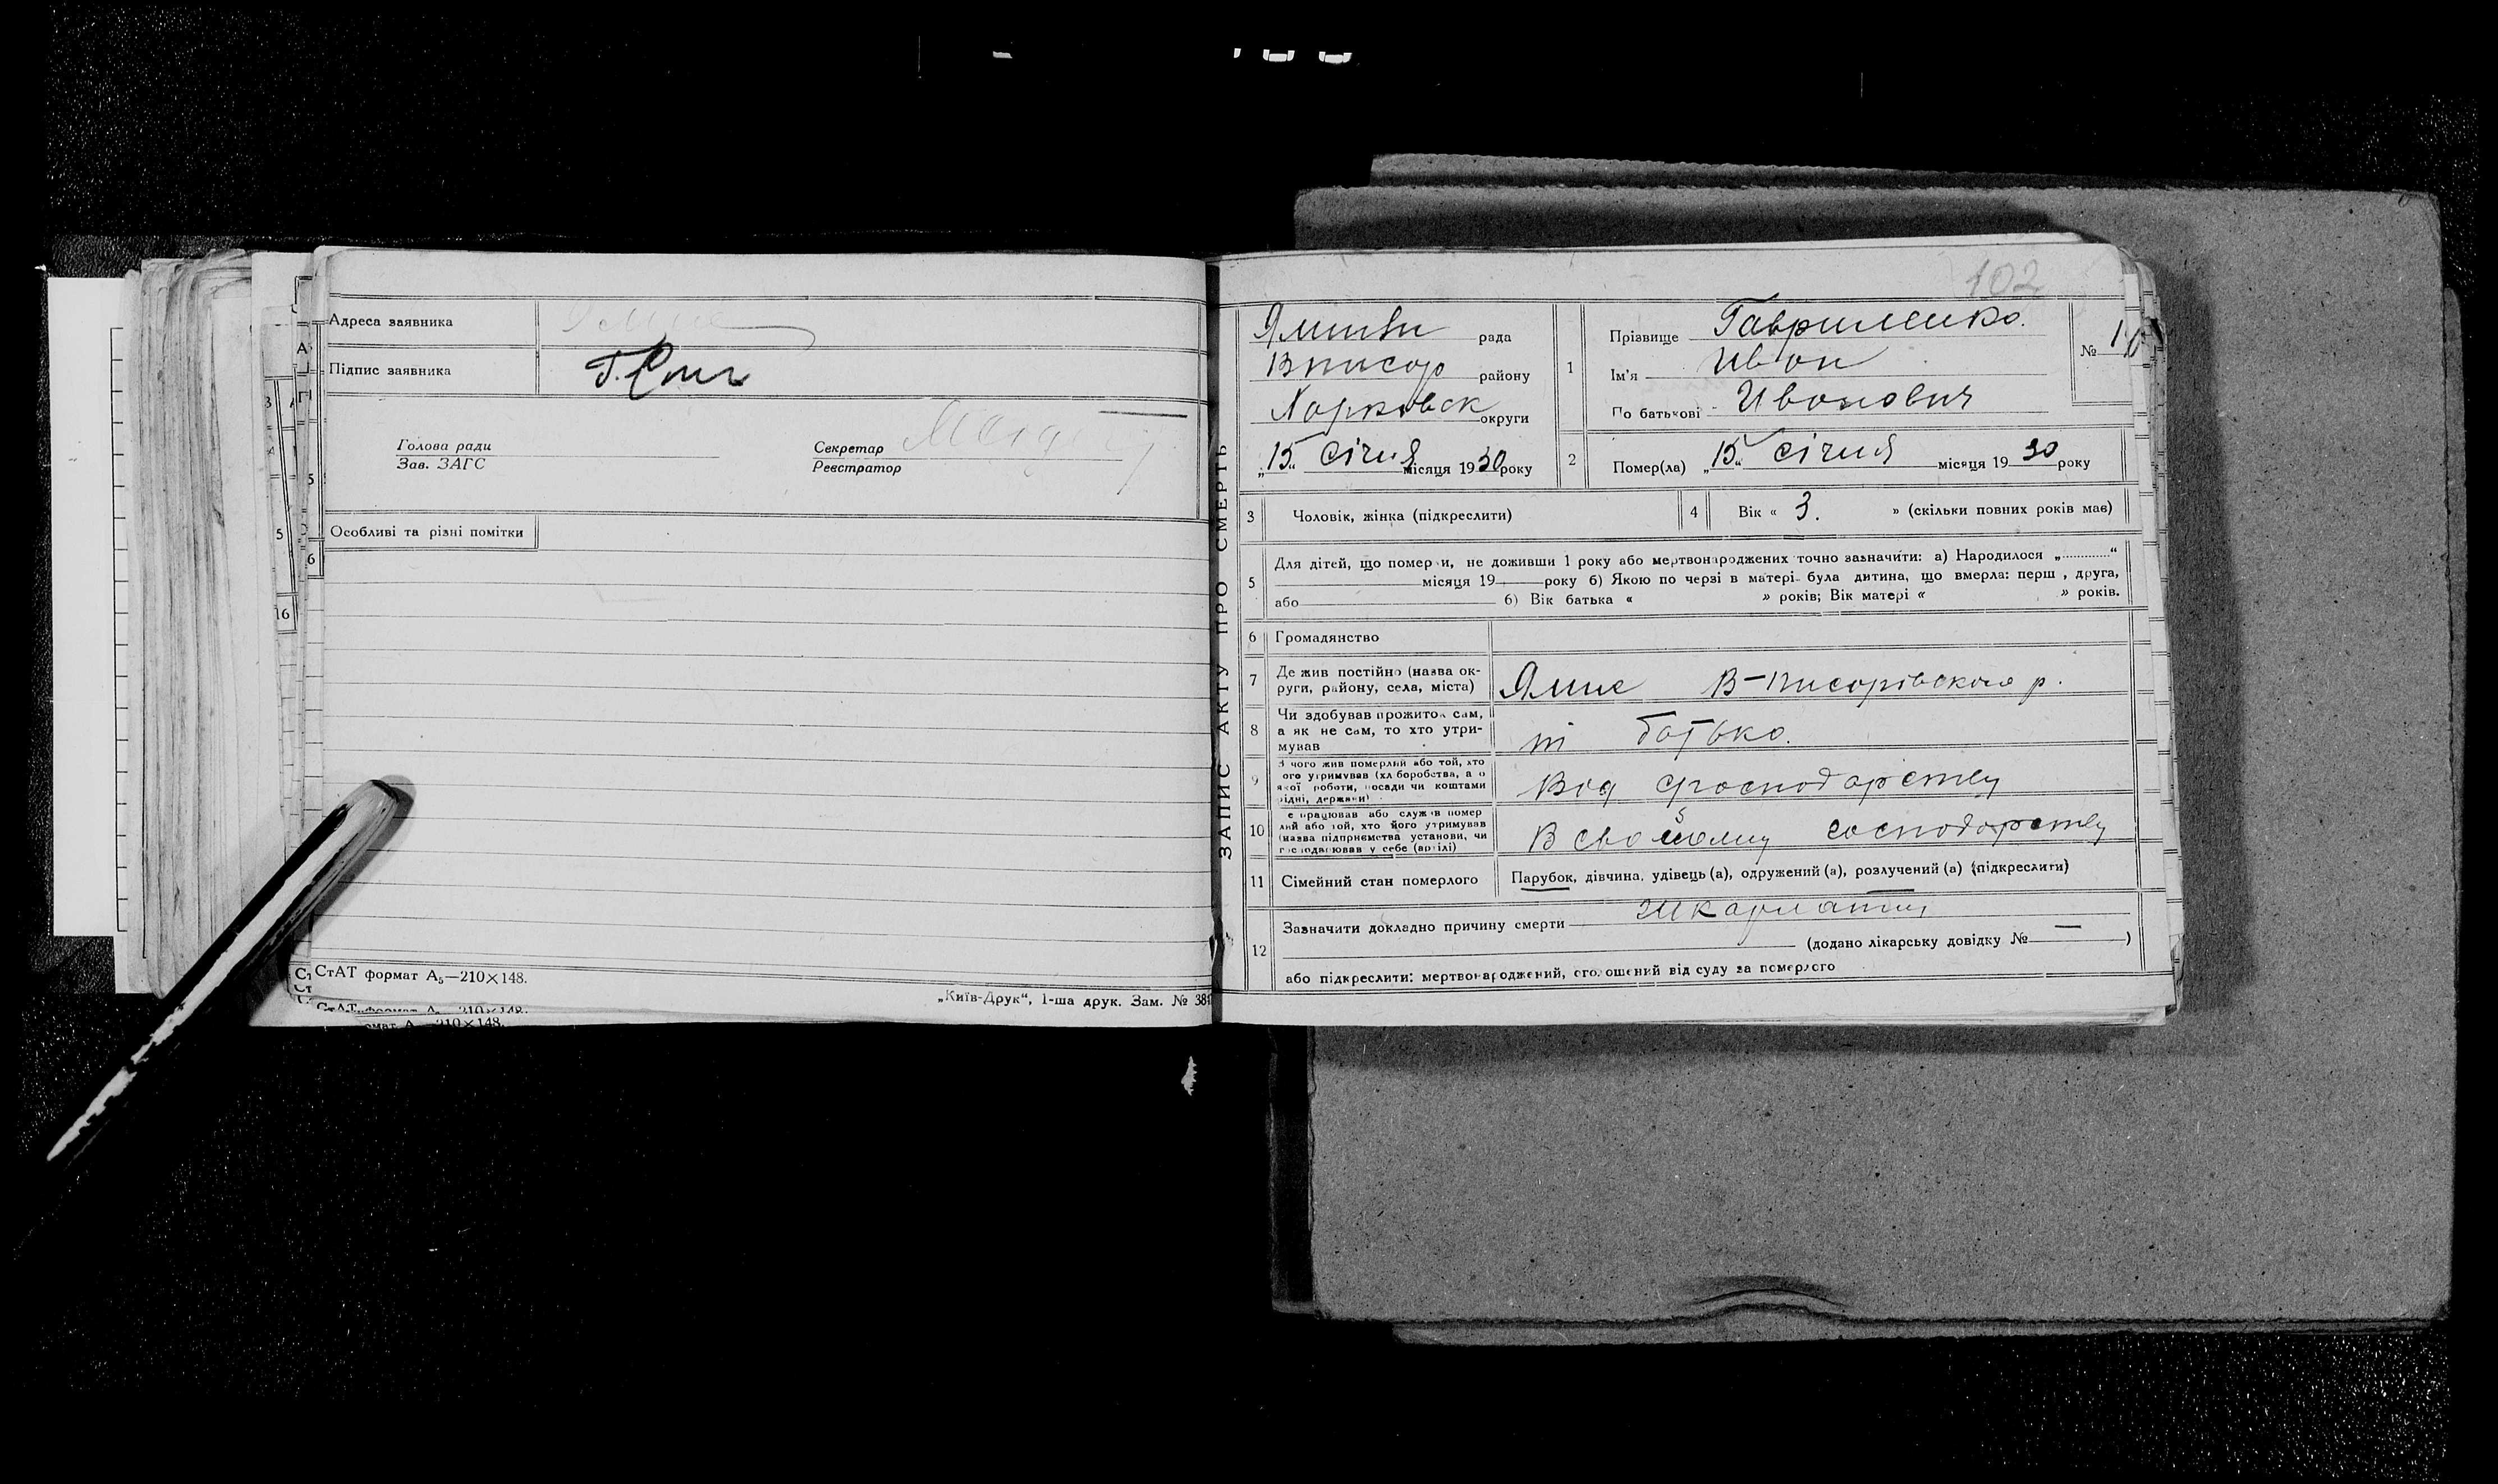 Адреса заявника
Підпис заявника
Голова ради
Зав. ЗАГС
Секретар
Реєстратор
Особливі та різні помітки
СтАТ формат А₅—210×148.
„Київ-Друк“, 1-ша друк. Зам. № 381
ЗАПИС АКТУ ПРО СМЕРТЬ
102
рада
району
Харківськ округи
„15“ Січня місяця 1930 року
1
Прізвище Гавриленко.
Ім'я Иван
По батькові Иванович
№ 10
2 Помер(ла) „15“ Січня місяця 19 30 року
3 Чоловік, жінка (підкреслити)
4 Вік « 3. » (скільки повних років мав)
5 Для дітей, що померли, не доживши 1 року або мертвонароджених точно зазначити: а) Народилося „..........“
місяця 19 року б) Якою по черзі в матері була дитина, що вмерла: перша, друга,
або б) Вік батька « » років; Вік матері « » років.
6 Громадянство
7 Де жив постійно (назва ок-
руги, району, села, міста) Ямне В-Писарівского р.
8 Чи здобував прожиток сам,
а як не сам, то хто утри-
мував ні батько.
9 З чого жив померлий або той, хто
його утримував (хліборобства, а о
якої роботи, посади чи коштами
рідні, держави) Від господарству
10 Де працював або служив помер
лий або той, хто його утримував
(назва підприємства установи, чи
господарював у себе (артілі) В своєому господарству
11 Сімейний стан померлого Парубок, дівчина, удівець (а), одружений (а), розлучений (а) (підкреслити)
12 Зазначити докладно причину смерти Шкарлатину
(додано лікарську довідку № — )
або підкреслити: мертвонароджений, оголошений від суду за померлого